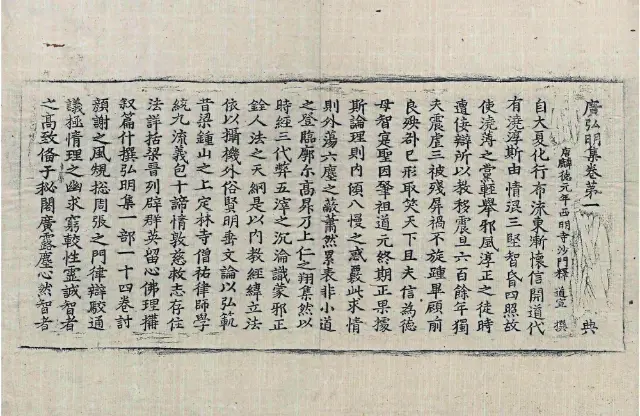 廣弘明集卷第一 典
唐麟德元年西明寺沙門釋道宣撰
自大夏化行布流東漸懷信開道代
有澆淳斯由情混三堅智昏四照故
使澆薄之黨輕舉邪風淳正之徒時
遭佞辯所以教移震旦六百餘年獨
夫震虐三被殘屏禍不旋踵畢顧前
良殃咎已形取笑天下且夫信為德
母智寔聖因肇祖道元終期正果據
斯論理則內傾八慢之惑覈此求情
則外蕩六塵之蔽蕭然累表非小道
之登臨廓尒高昇乃上仁之翔集然以
時經三代弊五滓之沉淪識蒙邪正
銓人法之天網是以內教經緯立法
依以攝機外俗賢明垂文論以弘軌
昔梁鍾山之上定林寺僧祐律師學
統九流義包十諦情敦慈救志存住
法詳括梁晉列辟群英留心佛理搆
叙篇什撰弘明集一部一十四卷討
顏謝之風規揔周張之門律辯駮通
議極情理之幽求窮較性靈誠智者
之高致備于秘閣廣露塵心然智者